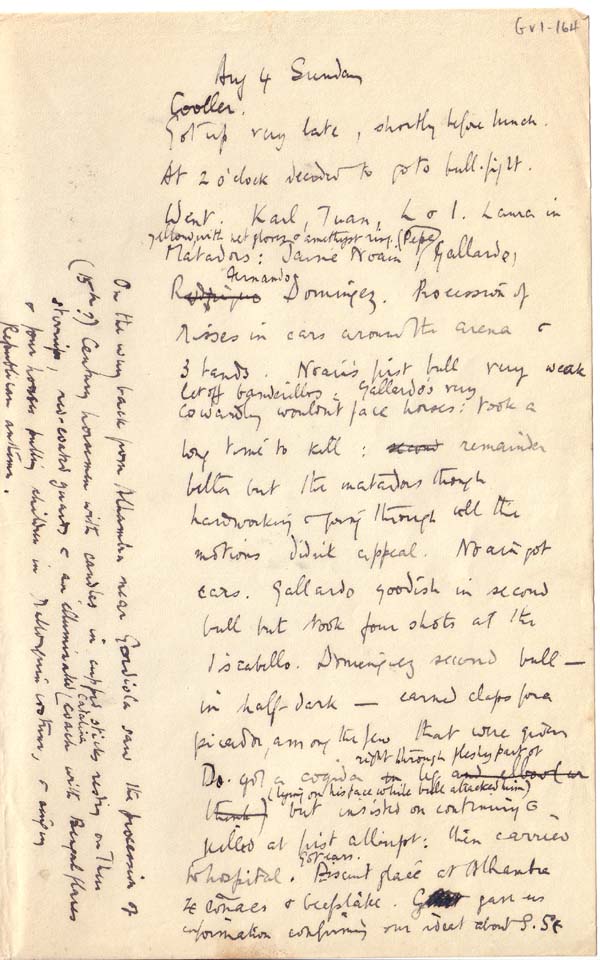 GV1-164
Aug 4 Sunday
Cooler.
Got up very late, shortly before lunch.
At 2 o'clock decided to go to bull-fight.
Went. Karl, Juan, L & I. Laura in
yellow, with net gloves & amethyst ring. (Pepe)
Matadors: Jaime Noain, Gallardo,
Fernando
Rodrigue Dominguez. Procession of
misses in cars around the arena &
3 bands. Noain's first bull very weak
let off banderillos. Gallardo's very
cowardly wouldn't face horses: took a
long time to kill: second remainder
better but the matadors though
hardworking & going through all the
motions didn't appeal. Noain got
ears. Gallardo goodish in second
bull but took four shots at the
Discabello. Dominguez second bull —
in half-dark — earned claps for a
picador, among the few that were given
right through fleshy part of
Do. got a cogida in leg and elbow (or
(lying on his face while bull attacked him)
think) but insisted on continuing &
killed at first attempt: then carried
got ears.
to hospital. at Alhambra
4 coñacs & beefstake. gave us
information confirming our ideas about S.S
On the way back from Alhambra near Gordiola saw the procession of
(15th ?) Century horsemen with candles in cupped sticks resting on their
stirrups, red-coated guards & an illuminated (Catalina) coach with Bengal flares
& four horses pulling children in Mallorquin costumes, & singing
Republican anthems.